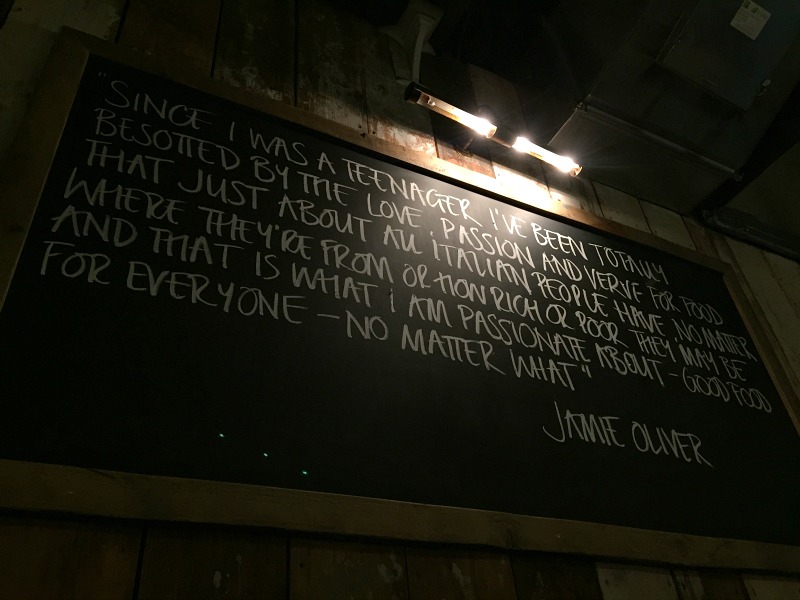 "SINCE I WAS A TEENAGER I'VE BEEN TOTALLY
BESOTTED BY THE LOVE, PASSION AND VERVE FOR FOOD
THAT JUST ABOUT ALL ITALIAN PEOPLE HAVE, NO MATTER
WHERE THEY'RE FROM OR HOW RICH OR POOR THEY MAY BE
AND THAT IS WHAT I AM PASSIONATE ABOUT - GOOD FOOD
FOR EVERYONE - NO MATTER WHAT"
JAMIE OLIVER